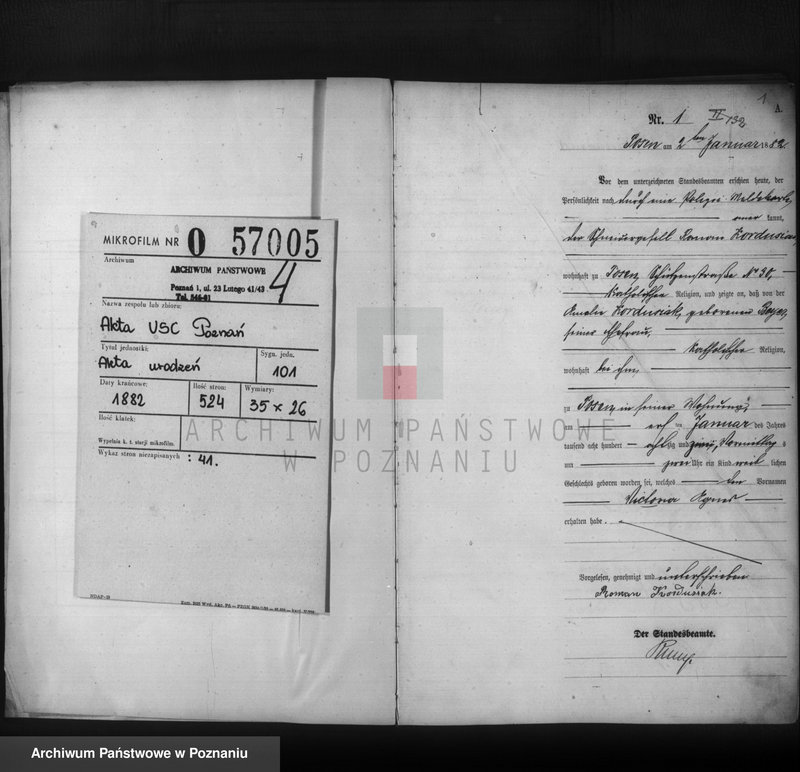 MIKROFILM NR 0 57005
Archiwum
ARCHIWUM PAŃSTWOWE
Poznań 1, ul. 23 Lutego 41/43
Tel. 544-81
4
Nazwa zespołu lub zbioru:
Akta USC Poznań
Tytuł jednostki:
Akta urodzeń
Sygn. jedn.
101
Daty krańcowe:
1882
Ilość stron:
524
Wymiary:
35 x 26
Ilość klatek:
Wypełnia k. t. stacji mikrofilm.
Wykaz stron niezapisanych : 41.
1
A.
Nr. 1 II/132
Posen am 2 ten Januar 1882
Vor dem unterzeichneten Standesbeamten erschien heute, der
Persönlichkeit nach durch eine Polizei Meldekarte
kannt,
der Schneidergesell Roman Kordusiak
wohnhaft zu Posen Schützenstraße No 30
katholischer Religion, und zeigte an, daß von der
Amalie Kordusiak, geborenen
seiner Ehefrau,
katholischer Religion,
wohnhaft bei ihm,
zu Posen in seiner Wohnung,
am ersten Januar des Jahres
tausend acht hundert achtzig und zwei, Vormittags
um zwei Uhr ein Kind weiblichen
Geschlechts geboren worden sei, welches den Vornamen
Victoria Agnes
erhalten habe.
Vorgelesen, genehmigt und unterschrieben
Roman Kordusiak.
Der Standesbeamte.
ARCHIWUM PAŃSTWOWE
W POZNANIU
Archiwum Państwowe w Poznaniu